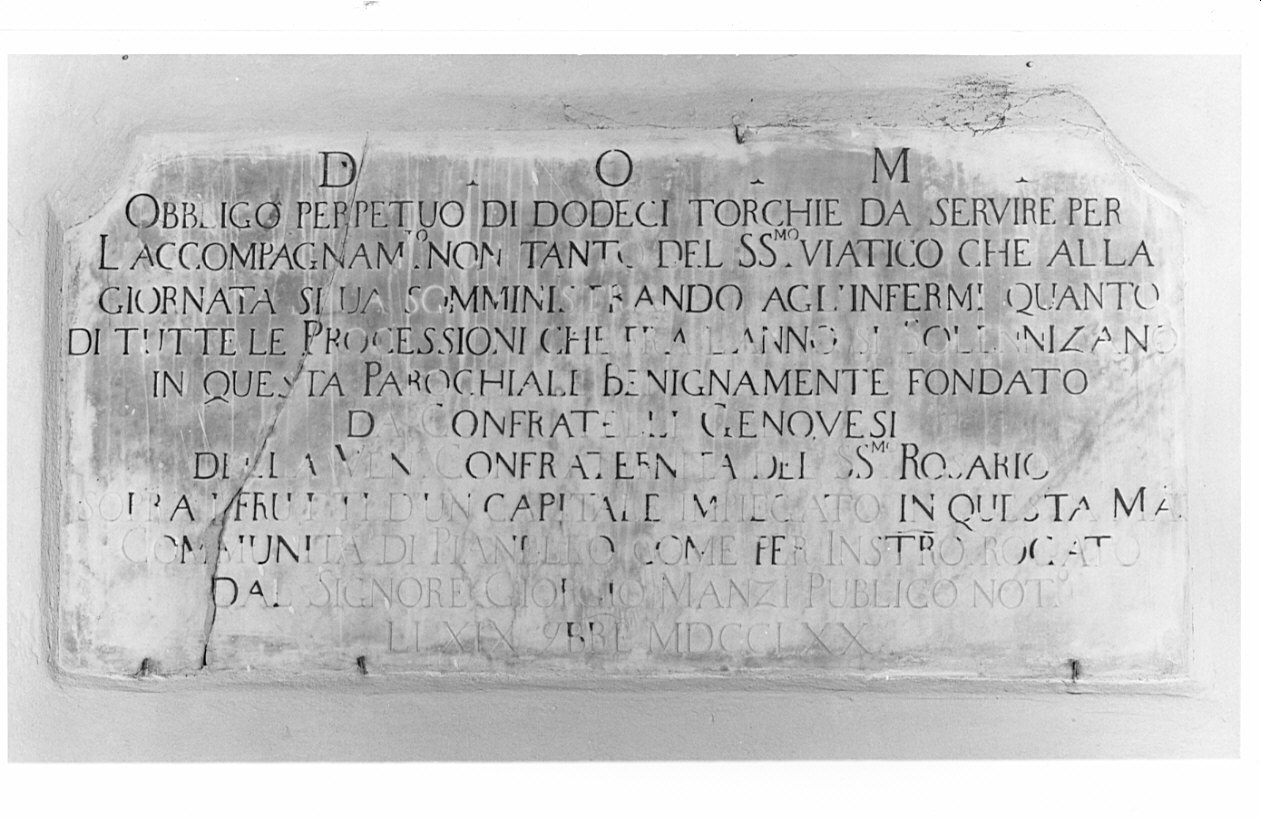 D . O . M .
OBBLIGO PERPETUO DI DODECI TORCHIE DA SERVIRE PER
L ACCOMPAGNAM.TO NON TANTO DEL SS.MO VIATICO CHE ALLA
GIORNATA SI UA SOMMINISTRANDO AGL'INFERMI QUANTO
DI TUTTE LE PROCESSIONI CHE FRA L'ANNO SI SOLENNIZANO
IN QUESTA PAROCHIALE BENIGNAMENTE FONDATO
DA CONFRATELLI GENOVESI
DELLA VEN. CONFRATERNITA DEL SS.MO ROSARIO
SOPRA I FRUTTI D'UN CAPITALE IMPIEGATO IN QUESTA MA.
COMMUNITA DI PIANELLO COME PER INSTRO ROGATO
DAL SIGNORE GIORGIO MANZI PUBLICO NOT.O
LI XIX 9BRE MDCCLXX